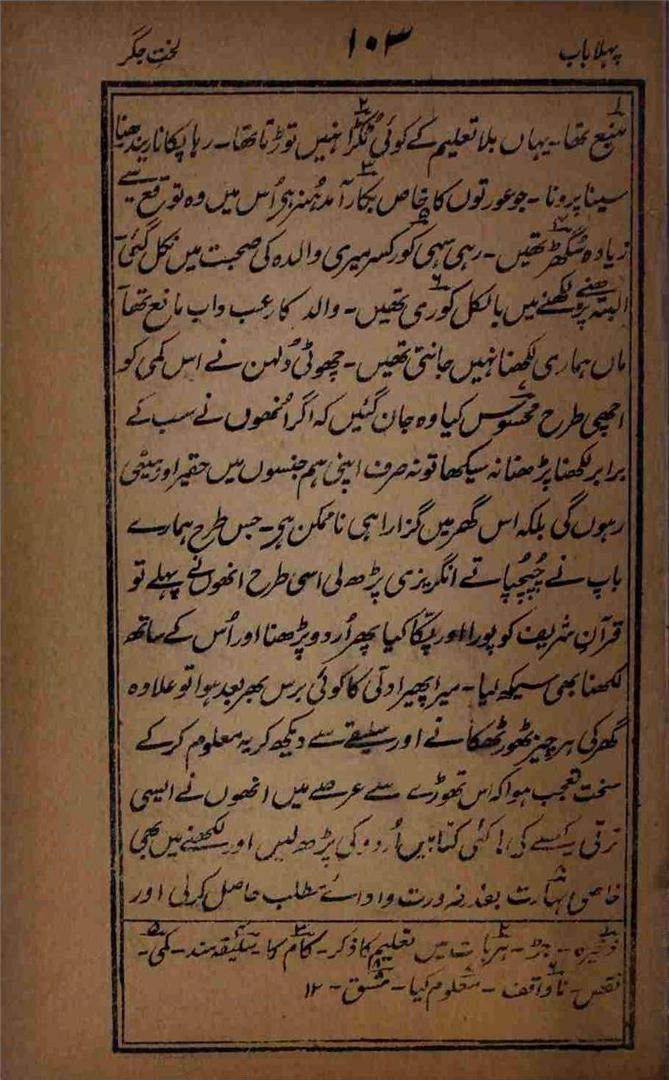 پہلا باب ۱۰۳ لختِ جگر
منبع تھا۔ یہاں بلا تعلیم کے کوئی ٹکڑا نہیں توڑتا تھا۔ رہا پکانا ریندھنا
سینا پرونا۔ جو عورتوں کا خاص بکار آمد ہُنر ہی اُس میں وہ توقع سے
زیادہ سُگھڑ تھیں۔ رہی سہی کور کسر میری والدہ کی صحبت میں نکل گئی۔
البتہ پڑھنے لکھنے میں بالکل کوری تھیں۔ والد کا رعب داب مانع تھا
ماں ہماری لکھنا نہیں جانتی تھیں۔ چھوٹی دُلہن نے اس کمی کو
اچھی طرح محسوس کیا وہ جان گئیں کہ اگر اُنھوں نے سب کے
برابر لکھنا پڑھنا نہ سیکھا تو نہ صرف اپنی ہم جنسوں میں حقیر اور ہیٹی
رہوں گی بلکہ اس گھر میں گزارا ہی ناممکن ہی۔ جس طرح ہمارے
باپ نے چُپ چُپاتے انگریزی پڑھ لی اسی طرح انھوں نے پہلے تو
قرآن شریف کو پورا اور پکّا کیا پھر اُردو پڑھنا اور اُس کے ساتھ
لکھنا بھی سیکھ لیا۔ میرا پھیرا دتی کا کوئی برس بھر بعد ہوا تو علاوہ
گھر کی ہر چیز ٹھور ٹھکانے اور سلیقے سے دیکھ کر یہ معلوم کر کے
سخت تعجب ہوا کہ اس تھوڑے سے عرصے میں انھوں نے ایسی
ترقی کیسے کی! کئی کتابیں اُردو کی پڑھ لیں اور لکھنے میں بھی
خاصی مہارت بقدر ضرورت و ادائے مطلب حاصل کر لی اور
ذخیرہ۔ جڑ۔ ہر بات میں تعلیم کا ذکر۔ کام کا۔ سلیقہ مند۔ کمی۔
نقص۔ ناواقف۔ معلوم کیا۔ مشق۔ ۱۲